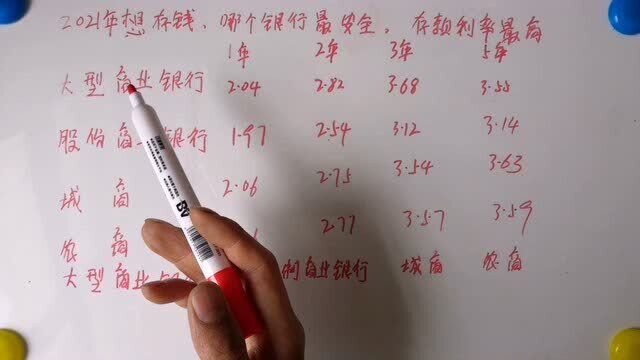 2021年想存钱、哪个银行最安全。存款利率最高
1年 2年 3年 5年
大型商业银行 2.04 2.82 3.68 3.55
股份商 银行 1.97 2.54 3.12 3.14
城商 2.06 2.75 3.54 3.63
农商 2.77 3.57 3.59
大型商业 制商业银行 城商 农商